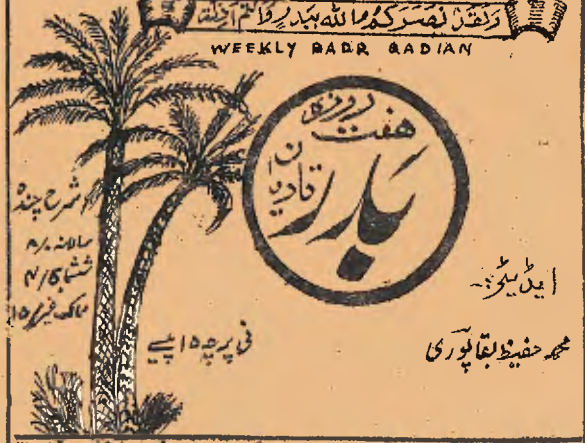 وَلَقَدْ نَصَرَكُمُ اللّٰهُ بِبَدْرٍ وَّاَنْتُمْ اَذِلَّةٌ
WEEKLY BADR QADIAN
ہفت روزہ
بدر
قادیان
شرح چندہ
سالانہ
ششماہی ۴
ممالک غیر ۱۵
فی پرچہ ۱۵ پیسے
ایڈیٹر:
محمد حفیظ بقاپوری